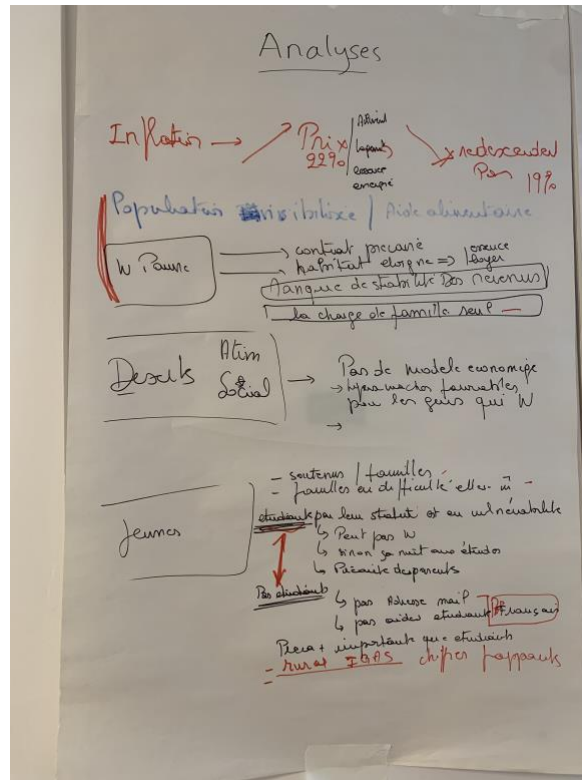 Analyses
Inflation → Prix
22%
essence
redescendent
Pas 19%
Population invibilisée / Aide alimentaire
W Pauvre
→ contrat précaire
→ habitat eloigné ⇒ essence
loyer
Manque de stabilité Des revenus
la charge de famille seul -
Deserts
Alim
Social
→ Pas de modele economiqe
pour les gens qui W
→
Jeunes
- soutenus / familles -
- familles en difficulté elles-m̄ -
etudiants par leur statut est en vulnérabilité
↳ Peut pas W
↳ sinon ça nuit aux études
↳ Précarité des parents
Pas etudiants
↳ pas Adresse mail
↳ pas aides etudiant
Français
Preca + importante que etudiants
- rural IGAS chifres frappants
-